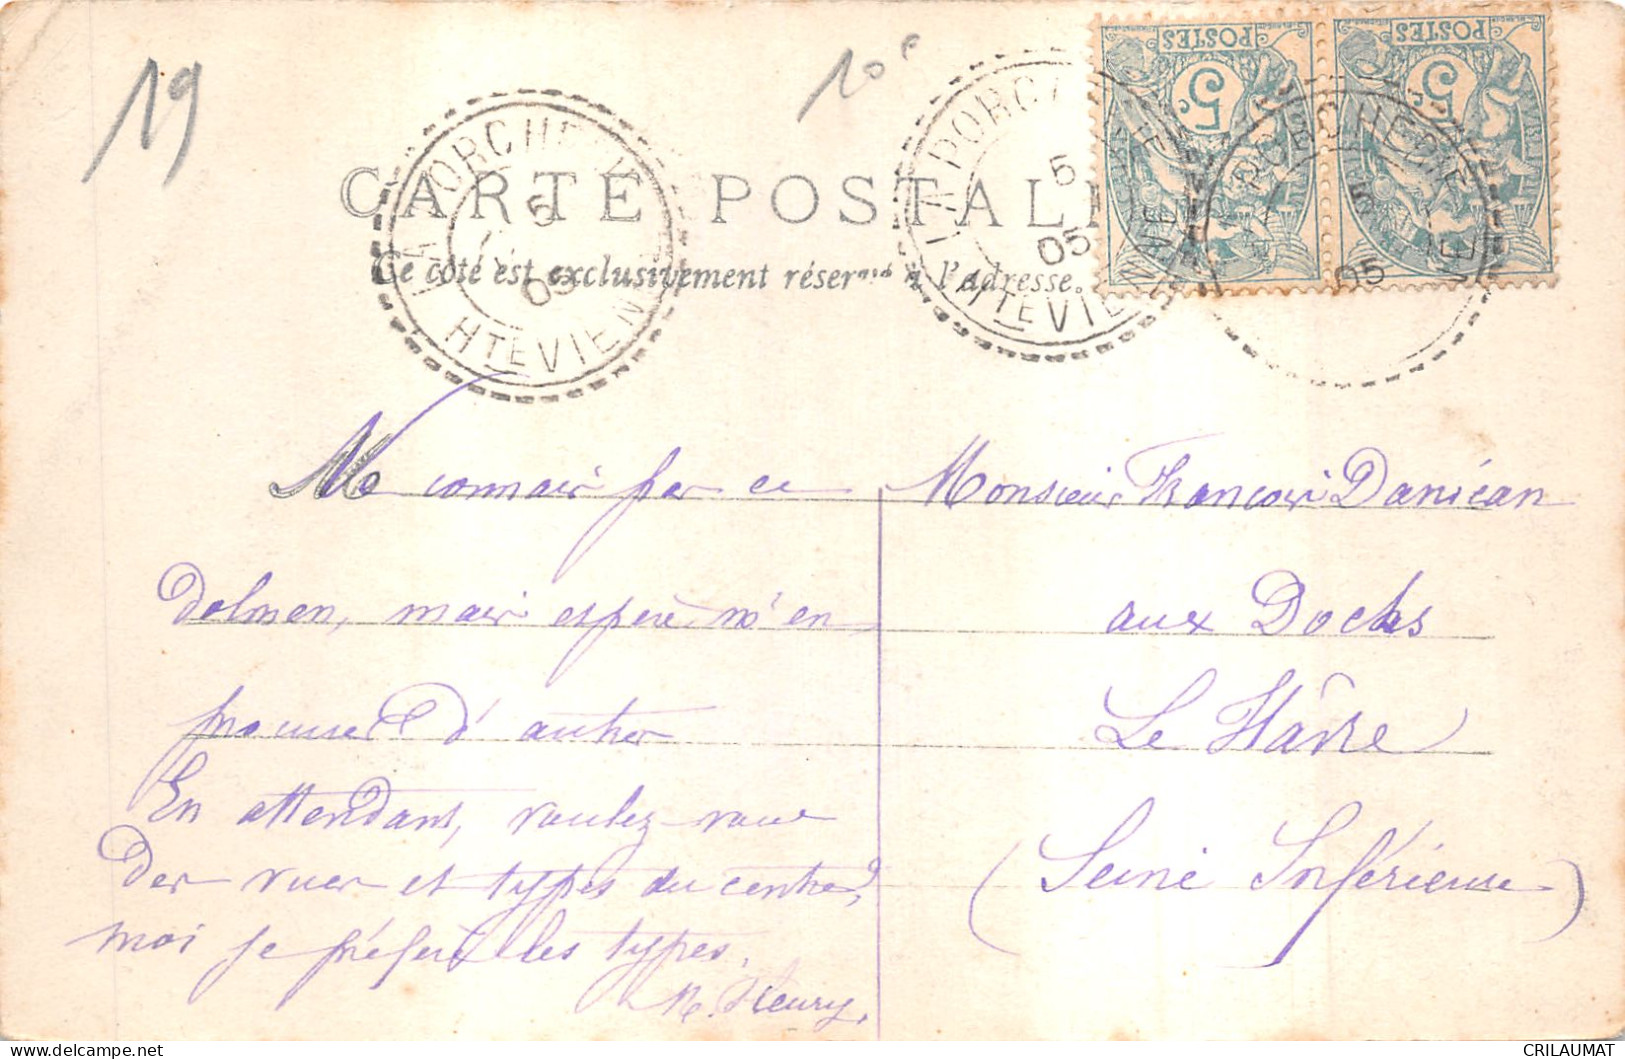 19
10 F
POSTES
5c
POSTES
5c
LA PORCHERIE
5
05
HTE VIENNE
LA PORCHERIE
5
05
HTE VIENNE
PORCHERIE
5
05
CARTE POSTALE
Ce côté est exclusivement réservé à l'adresse.
Ne connais par ce
dolmen, mais espère m'en
procurer d'autres
En attendant, voulez-vous
des vues et types du centre?
moi je préfère les types.
M. Fleury.
Monsieur François Danican
aux Docks
Le Hâvre
(Seine Inférieure)
CRILAUMAT